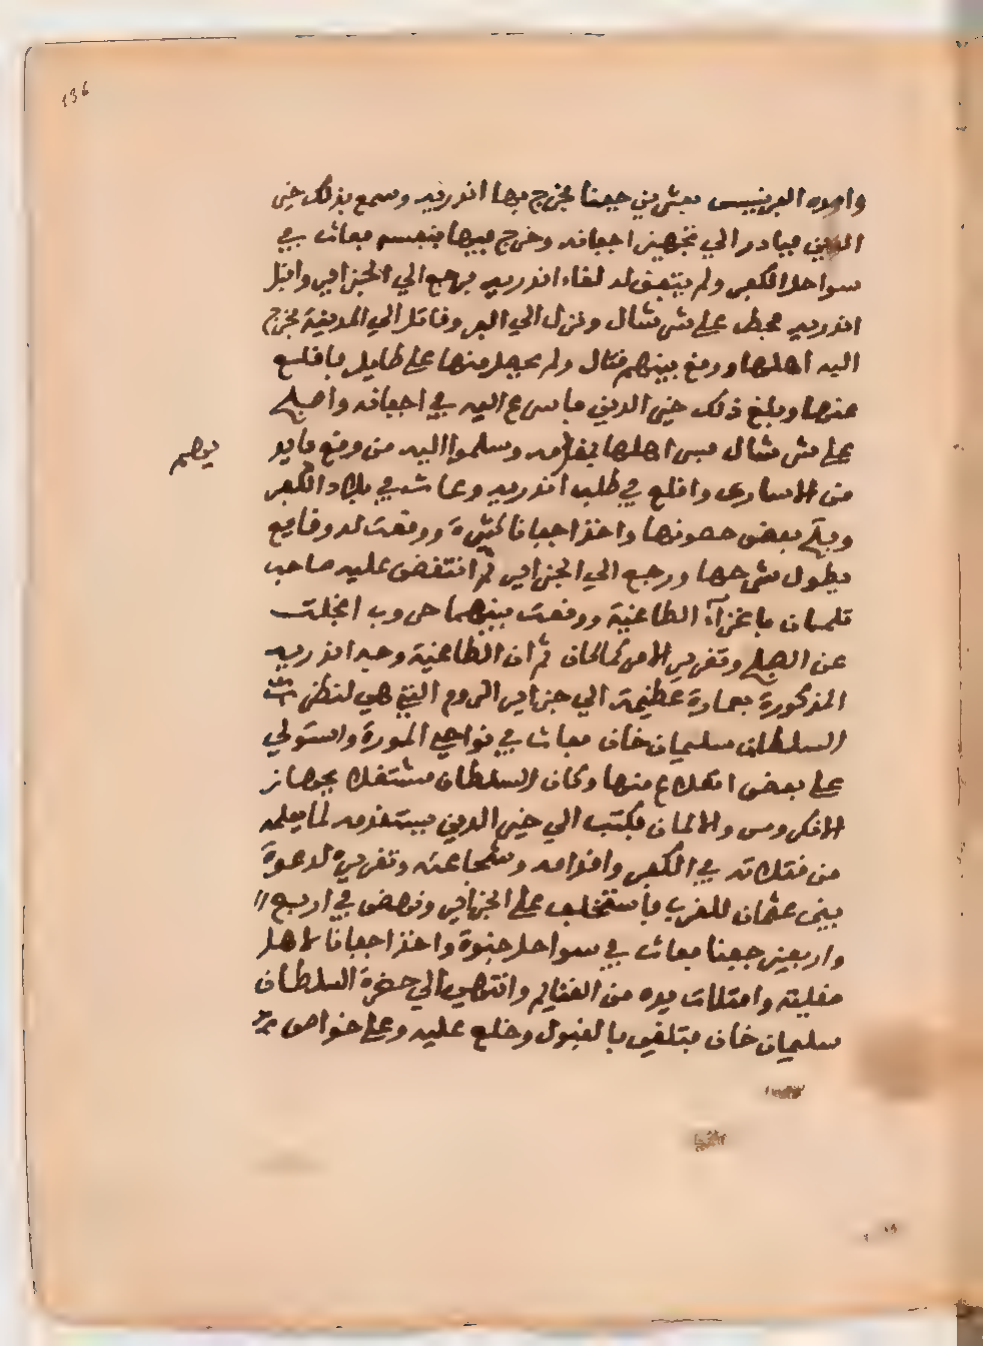 136
وامده البرنسيس بعشرين جفنا فخرج بها اندريه وسمع بذلك خير
الدين فبادر الي تجهيز اجفانه وخرج فيها بنفسه فعاث في
سواحل الكفر ولم يتفق له لقاء اندريه فرجع الي الجزاير واقبل
اندريه فحط على شرشال ونزل الي البر وقاتل الي المدينة فخرج
اليه اهلها ووقع بينهم قتال ولم يحصل منها على طايل فاقلع
عنها وبلغ ذلك خير الدين فاسرع اليه في اجفانه واطل
على شرشال فسر اهلها بقدومه وسلموا اليه من وقع بايديهم
من الاسارى واقلع في طلب اندريه وعاث في بلاد الكفر
وفتح بعض حصونها واخذ اجفانا كثيرة ووقعت له وقايع
يطول شرحها ورجع الي الجزاير ثم انتقض عليه صاحب
تلمسان باغراء الطاغية ووقعت بينهما حروب انجلت
عن الصلح وتقرير الامر كما كان ثم ان الطاغية وجه اندريه
المذكورة بعمارة عظيمة الي جزاير الروم التي هي لنظر
السلطان سليمان خان فعاث في نواحي المورة واستولي
على بعض اقلاع منها وكان السلطان مشتغلا بجهاز
الانكروس والالمان فكتب الي خير الدين يستقدمه لما يعلمه
من فتكاته في الكفر واقدامه وشجاعته وتقريره لدعوة
بني عثمان للغرب فاستخلف على الجزاير ونهض في اربع
واربعين جفنا فعاث في سواحل جنوة واخذ اجفانا لاهل
صقلية وامتلات يده من الغنايم وانتهى الي حضرة السلطان
سليمان خان فتلقي بالقبول وخلع عليه وعلى خواص